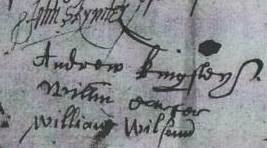 John Skynner
Andrew Kingsley
Willm Carter
William Wilsund